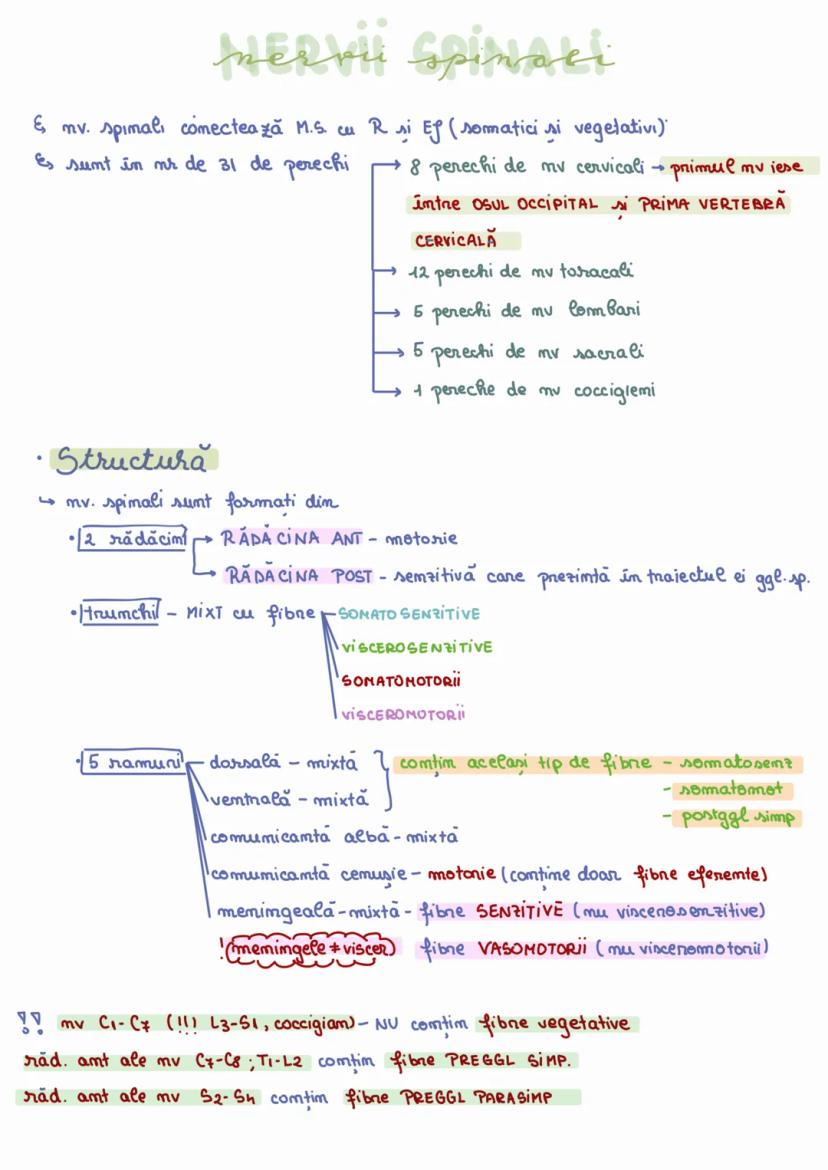 NERVII SPINALI
nervii spinali
nv. spinali conectează M.S. cu R și Ef (somatici și vegetativi)
sunt în nr de 31 de perechi
8 perechi de nv cervicali → primul nv iese
între OSUL OCCIPITAL și PRIMA VERTEBRĂ
CERVICALĂ
12 perechi de nv toracali
5 perechi de nv lombari
5 perechi de nv sacrali
1 pereche de nv coccigieni
• Structură
↳ nv. spinali sunt formați din
• 2 rădăcini → RĂDĂCINA ANT - motorie
→ RĂDĂCINA POST - senzitivă care prezintă în traiectul ei ggl. sp.
• trunchi - MIXT cu fibre - SOMATOSENZITIVE
VISCEROSENZITIVE
SOMATOMOTORII
VISCEROMOTORII
• 5 ramuri - dorsală - mixtă } conțin același tip de fibre - somatosenz
ventrală - mixtă - somatomot
- postggl simp
comunicantă albă - mixtă
comunicantă cenușie - motorie (conține doar fibre eferente)
meningeală - mixtă - fibre SENZITIVE (nu viscerosenzitive)
! (meningele ≠ viscer) fibre VASOMOTORII (nu visceromotorii)
!! nv C1-C7 (!!) L3-S1, coccigian) - NU conțin fibre vegetative
răd. ant ale nv C7-C8 ; T1-L2 conțin fibre PREGGL SIMP.
răd. ant ale nv S2-S4 conțin fibre PREGGL PARASIMP